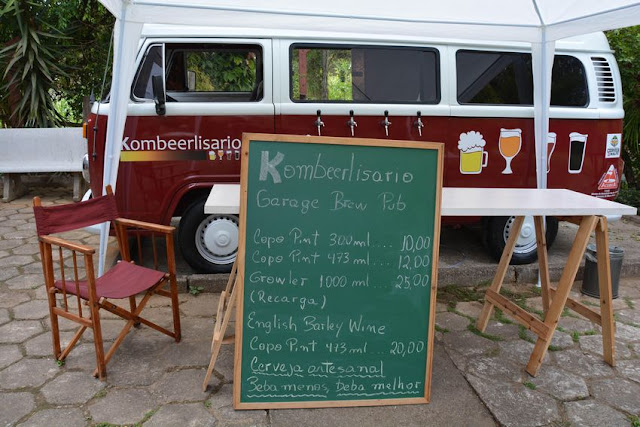 Kombeerlisario
Kombeerlisario
Garage Brew Pub
Copo Pint 300ml.... 10,00
Copo Pint 473ml.... 12,00
Growler 1000 ml.... 25,00
(Recarga)
English Barley Wine
Copo Pint 473ml... 20,00
Cerveja artesanal
Beba menos, beba melhor